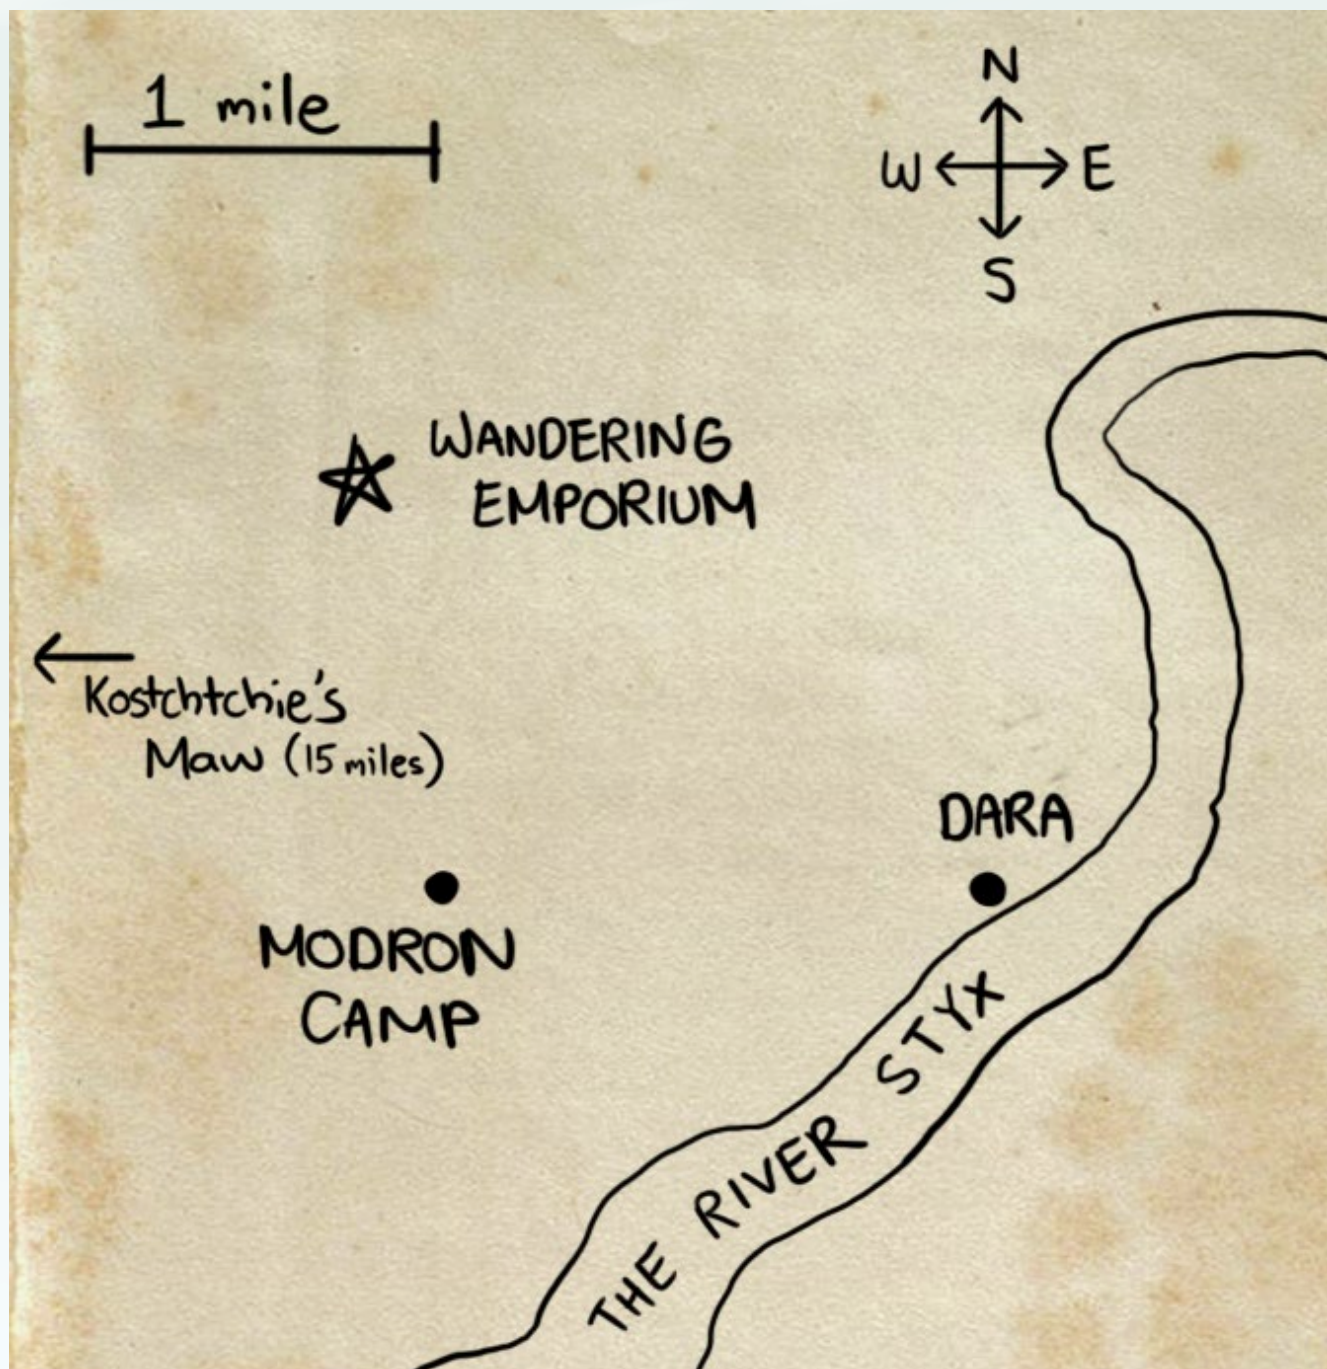 1 mile
N
W E
S
WANDERING
EMPORIUM
Kostchtchie's
Maw (15 miles)
DARA
MODRON
CAMP
THE RIVER STYX